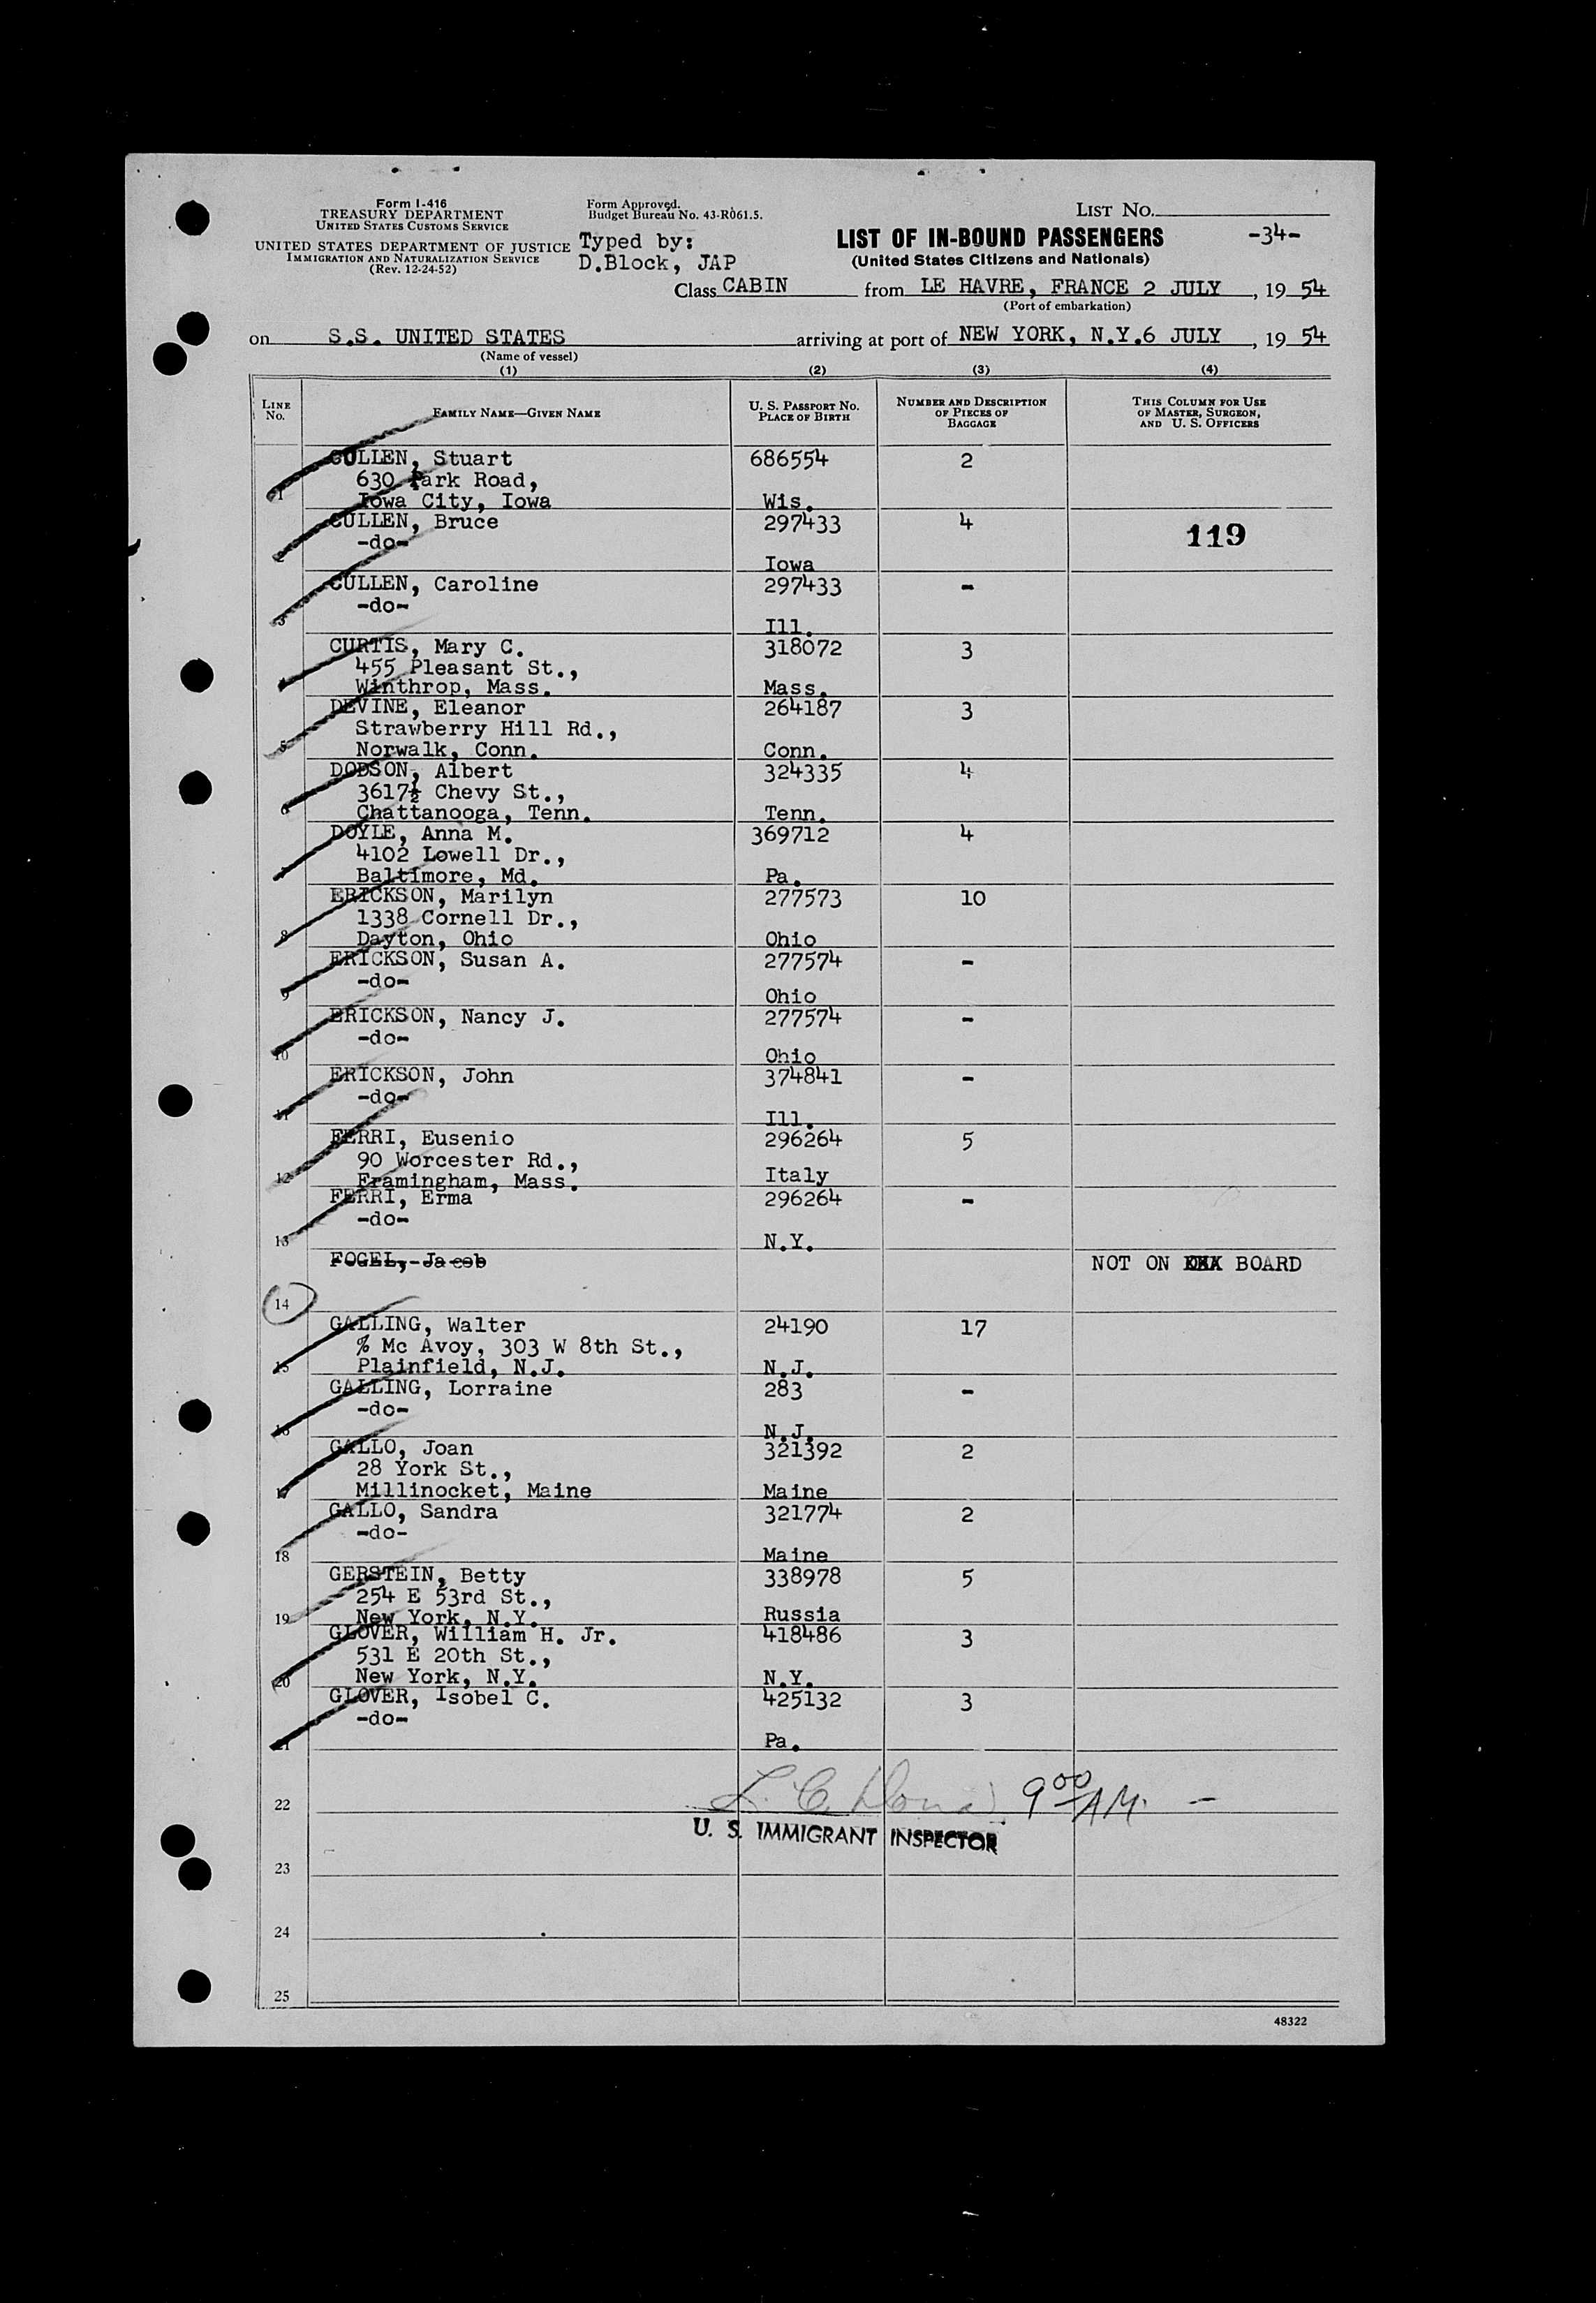 Form I-416
TREASURY DEPARTMENT
UNITED STATES CUSTOMS SERVICE
UNITED STATES DEPARTMENT OF JUSTICE
IMMIGRATION AND NATURALIZATION SERVICE
(Rev. 12-24-52)
Form Approved.
Budget Bureau No. 43-R061.5.
Typed by:
D.Block, JAP
LIST NO.
-34-
LIST OF IN-BOUND PASSENGERS
(United States Citizens and Nationals)
Class CABIN from LE HAVRE, FRANCE 2 JULY, 19 54
(Port of embarkation)
on S.S. UNITED STATES arriving at port of NEW YORK, N.Y.6 JULY, 19 54
(Name of vessel)
(1) (2) (3) (4)
LINE NO. FAMILY NAME—GIVEN NAME U. S. PASSPORT NO. PLACE OF BIRTH NUMBER AND DESCRIPTION OF PIECES OF BAGGAGE THIS COLUMN FOR USE OF MASTER, SURGEON, AND U. S. OFFICERS
CULLEN, Stuart 686554 2
630 Park Road,
1 Iowa City, Iowa Wis.
CULLEN, Bruce 297433 4
-do- 119
2 Iowa
CULLEN, Caroline 297433 -
-do-
3 Ill.
CURTIS, Mary C. 318072 3
455 Pleasant St.,
4 Winthrop, Mass. Mass.
DEVINE, Eleanor 264187 3
Strawberry Hill Rd.,
5 Norwalk, Conn. Conn.
DODSON, Albert 324335 4
3617½ Chevy St.,
6 Chattanooga, Tenn. Tenn.
DOYLE, Anna M. 369712 4
4102 Lowell Dr.,
7 Baltimore, Md. Pa.
ERICKSON, Marilyn 277573 10
1338 Cornell Dr.,
8 Dayton, Ohio Ohio
ERICKSON, Susan A. 277574 -
-do-
9 Ohio
ERICKSON, Nancy J. 277574 -
-do-
10 Ohio
ERICKSON, John 374841 -
-do-
11 Ill.
FERRI, Eusenio 296264 5
90 Worcester Rd.,
12 Framingham, Mass. Italy
FERRI, Erma 296264 -
-do-
13 N.Y.
FOGEL, Jacob NOT ON BOARD
14
GALLING, Walter 24190 17
% Mc Avoy, 303 W 8th St.,
15 Plainfield, N.J. N.J.
GALLING, Lorraine 283 -
-do-
16 N.J.
GALLO, Joan 321392 2
28 York St.,
17 Millinocket, Maine Maine
GALLO, Sandra 321774 2
-do-
18 Maine
GERSTEIN, Betty 338978 5
254 E 53rd St.,
19 New York, N.Y. Russia
GLOVER, William H. Jr. 418486 3
531 E 20th St.,
20 New York, N.Y. N.Y.
GLOVER, Isobel C. 425132 3
-do-
21 Pa.
22 L. C. 9 00 AM. —
U. S. IMMIGRANT INSPECTOR
23
24
25
48322